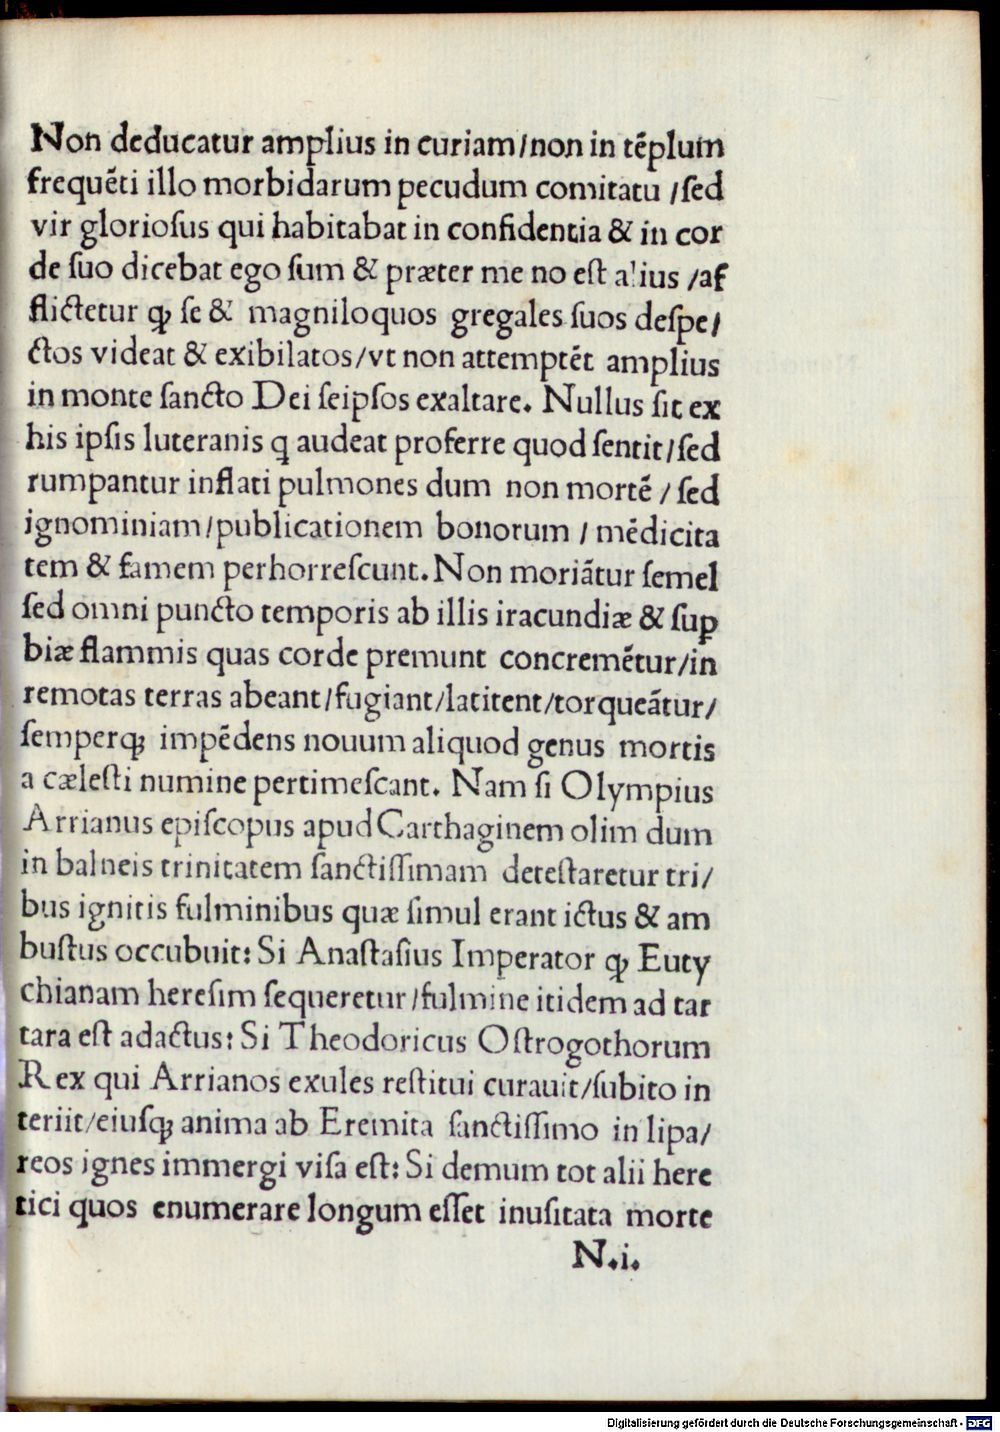 Non deducatur amplius in curiam/non in tẽplum
frequẽti illo morbidarum pecudum comitatu /ſed
vir glorioſus qui habitabat in confidentia & in cor
de ſuo dicebat ego ſum & præter me no eſt alius /af
flictetur ꝙ ſe & magniloquos gregales ſuos deſpe/
ctos videat & exibilatos/vt non attemptẽt amplius
in monte ſancto Dei ſeipſos exaltare. Nullus ſit ex
his ipſis luteranis q audeat proferre quod ſentit/ſed
rumpantur inflati pulmones dum non mortẽ / ſed
ignominiam/publicationem bonorum / mẽdicita
tem & famem perhorreſcunt. Non moriãtur ſemel
ſed omni puncto temporis ab illis iracundiæ & ſuꝑ
biæ flammis quas corde premunt concremẽtur/in
remotas terras abeant/fugiant/latitent/torqueãtur/
ſemperqꝫ impẽdens nouum aliquod genus mortis
a cæleſti numine pertimeſcant. Nam ſi Olympius
Arrianus epiſcopus apud Carthaginem olim dum
in balneis trinitatem ſanctiſſimam deteſtaretur tri/
bus ignitis fulminibus quæ ſimul erant ictus & am
buſtus occubuit: Si Anaſtaſius Imperator ꝙ Euty
chianam hereſim ſequeretur/fulmine itidem ad tar
tara eſt adactus: Si Theodoricus Oſtrogothorum
Rex qui Arrianos exules reſtitui curauit/ſubito in
teriit/eiuſqꝫ anima ab Eremita ſanctiſſimo in lipa/
reos ignes immergi viſa eſt: Si demum tot alii here
tici quos enumerare longum eſſet inuſitata morte
N.i.
Digitalisierung gefördert durch die Deutsche Forschungsgemeinschaft - DFG